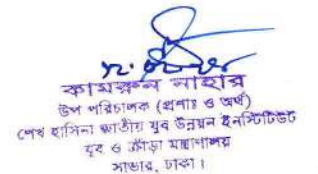 কামরুন নাহার
উপ পরিচালক (প্রশাঃ ও অর্থ)
শেখ হাসিনা জাতীয় যুব উন্নয়ন ইনস্টিটিউট
যুব ও ক্রীড়া মন্ত্রণালয়
সাভার, ঢাকা।